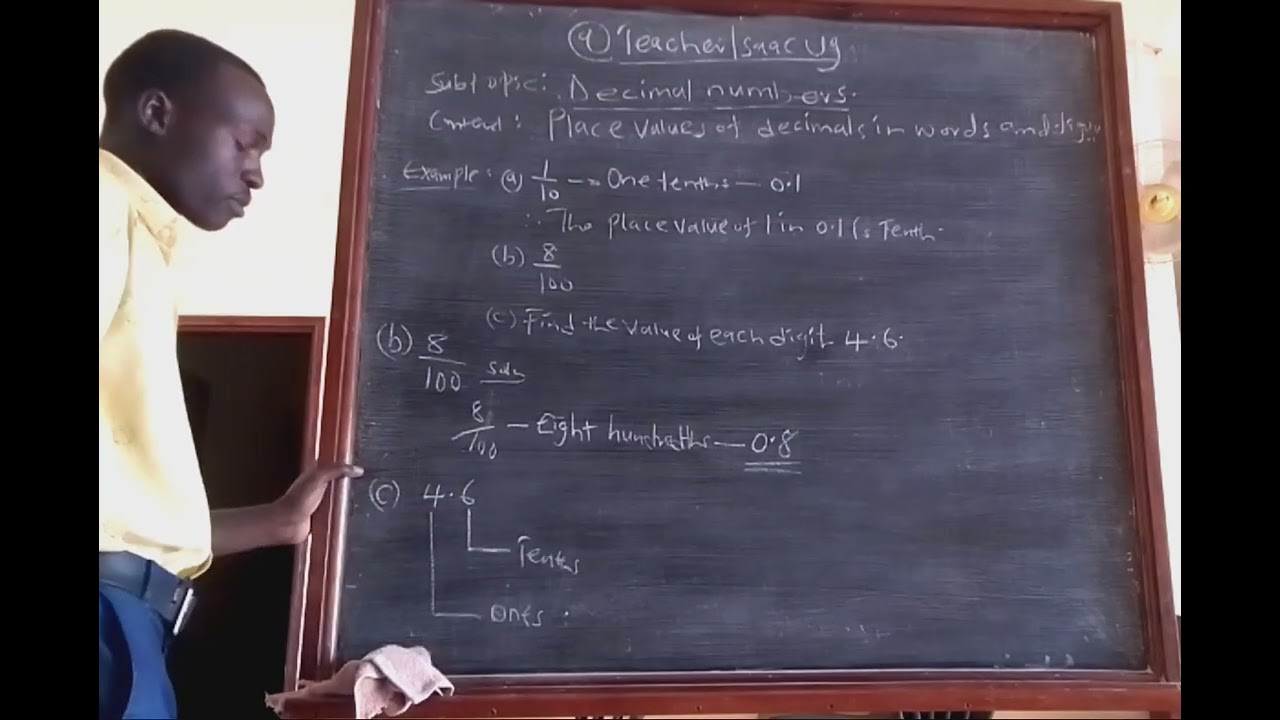 @TeacherIsaacUg
Subtopic: Decimal numbers.
Content: Place values of decimals in words and
Example: (a) 1/10 → One tenths — 0.1
∴ The place value of 1 in 0.1 is Tenth.
(b) 8/100
(c) Find the value of each digit 4.6.
(b) 8/100 Soln
8/100 — Eight hundredths — 0.8
(c) 4.6
Tenths
Ones